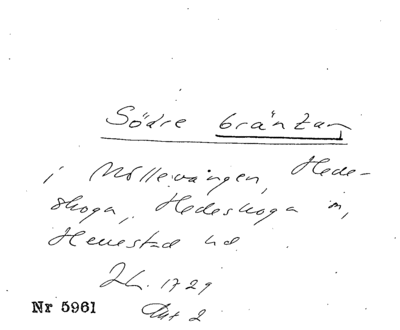 Södre bräntan
i Möllevången, Hede-
skoga, Hedeskoga sn,
Herrestad hd
Lh. 1729
Akt 2
Nr 5961